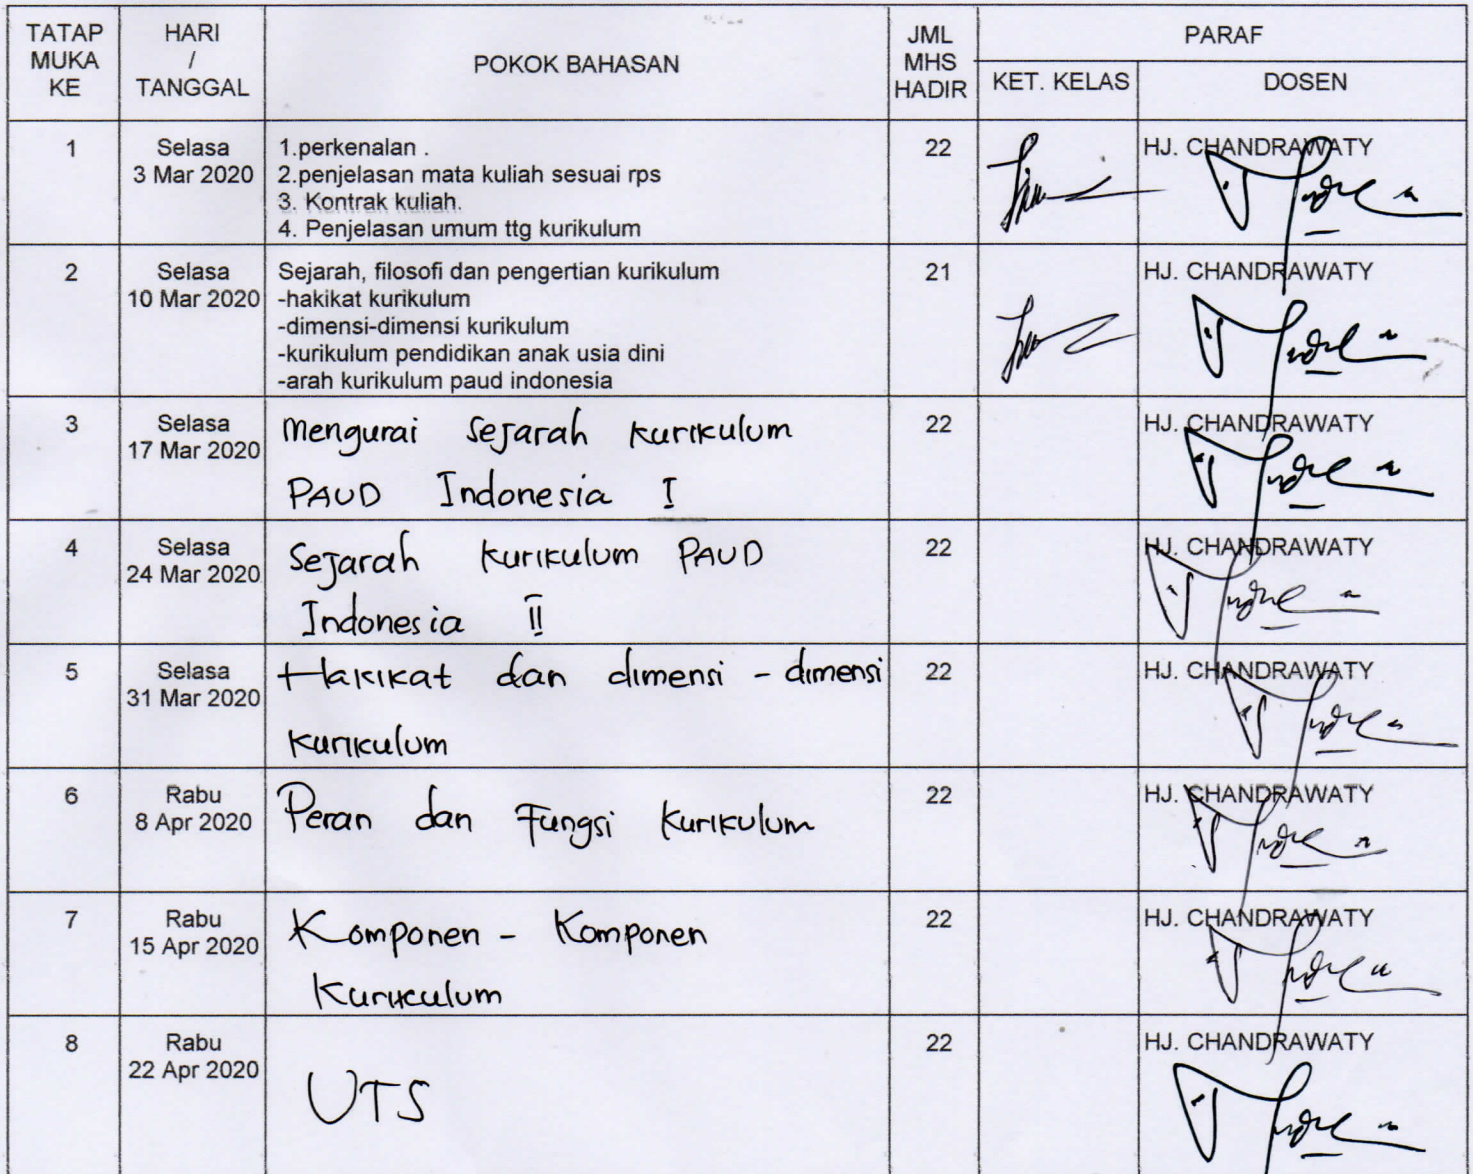 TATAP MUKA KE
HARI / TANGGAL
POKOK BAHASAN
JML MHS HADIR
PARAF
KET. KELAS
DOSEN
1
Selasa
3 Mar 2020
1.perkenalan .
2.penjelasan mata kuliah sesuai rps
3. Kontrak kuliah.
4. Penjelasan umum ttg kurikulum
22
HJ. CHANDRAWATY
2
Selasa
10 Mar 2020
Sejarah, filosofi dan pengertian kurikulum
-hakikat kurikulum
-dimensi-dimensi kurikulum
-kurikulum pendidikan anak usia dini
-arah kurikulum paud indonesia
21
HJ. CHANDRAWATY
3
Selasa
17 Mar 2020
Mengurai Sejarah Kurikulum
PAUD Indonesia I
22
HJ. CHANDRAWATY
4
Selasa
24 Mar 2020
Sejarah Kurikulum PAUD
Indonesia II
22
HJ. CHANDRAWATY
5
Selasa
31 Mar 2020
Hakikat dan dimensi - dimensi
Kurikulum
22
HJ. CHANDRAWATY
6
Rabu
8 Apr 2020
Peran dan Fungsi Kurikulum
22
HJ. CHANDRAWATY
7
Rabu
15 Apr 2020
Komponen - Komponen
Kurikulum
22
HJ. CHANDRAWATY
8
Rabu
22 Apr 2020
UTS
22
HJ. CHANDRAWATY